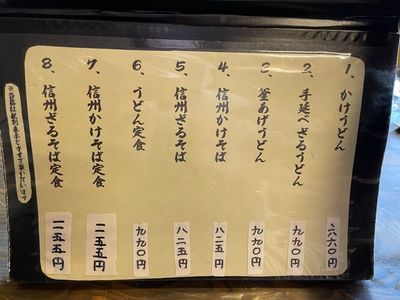 1、かけうどん 六六〇円
2、手延べざるうどん 九九〇円
3、釜あげうどん 九九〇円
4、信州かけそば 八二五円
5、信州ざるそば 八二五円
6、うどん定食 九九〇円
7、信州かけそば定食 一二五五円
8、信州ざるそば定食 一二五五円